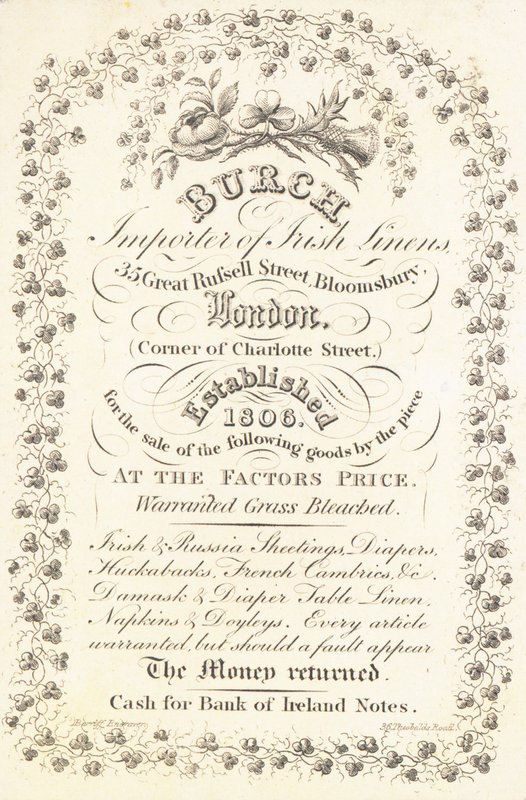 BURCH,
Importer of Irish Linens,
35 Great Ruſsell Street, Bloomsbury,
London.
(Corner of Charlotte Street.)
Established
1806.
for the sale of the following goods by the piece
AT THE FACTORS PRICE.
Warranted Grass Bleached.
Irish & Russia Sheetings, Diapers,
Huckabacks, French Cambrics, &c.
Damask & Diaper Table Linen,
Napkins & Doyleys. Every article
warranted, but should a fault appear
The Money returned.
Cash for Bank of Ireland Notes.
Engraver 36 Theobalds Road